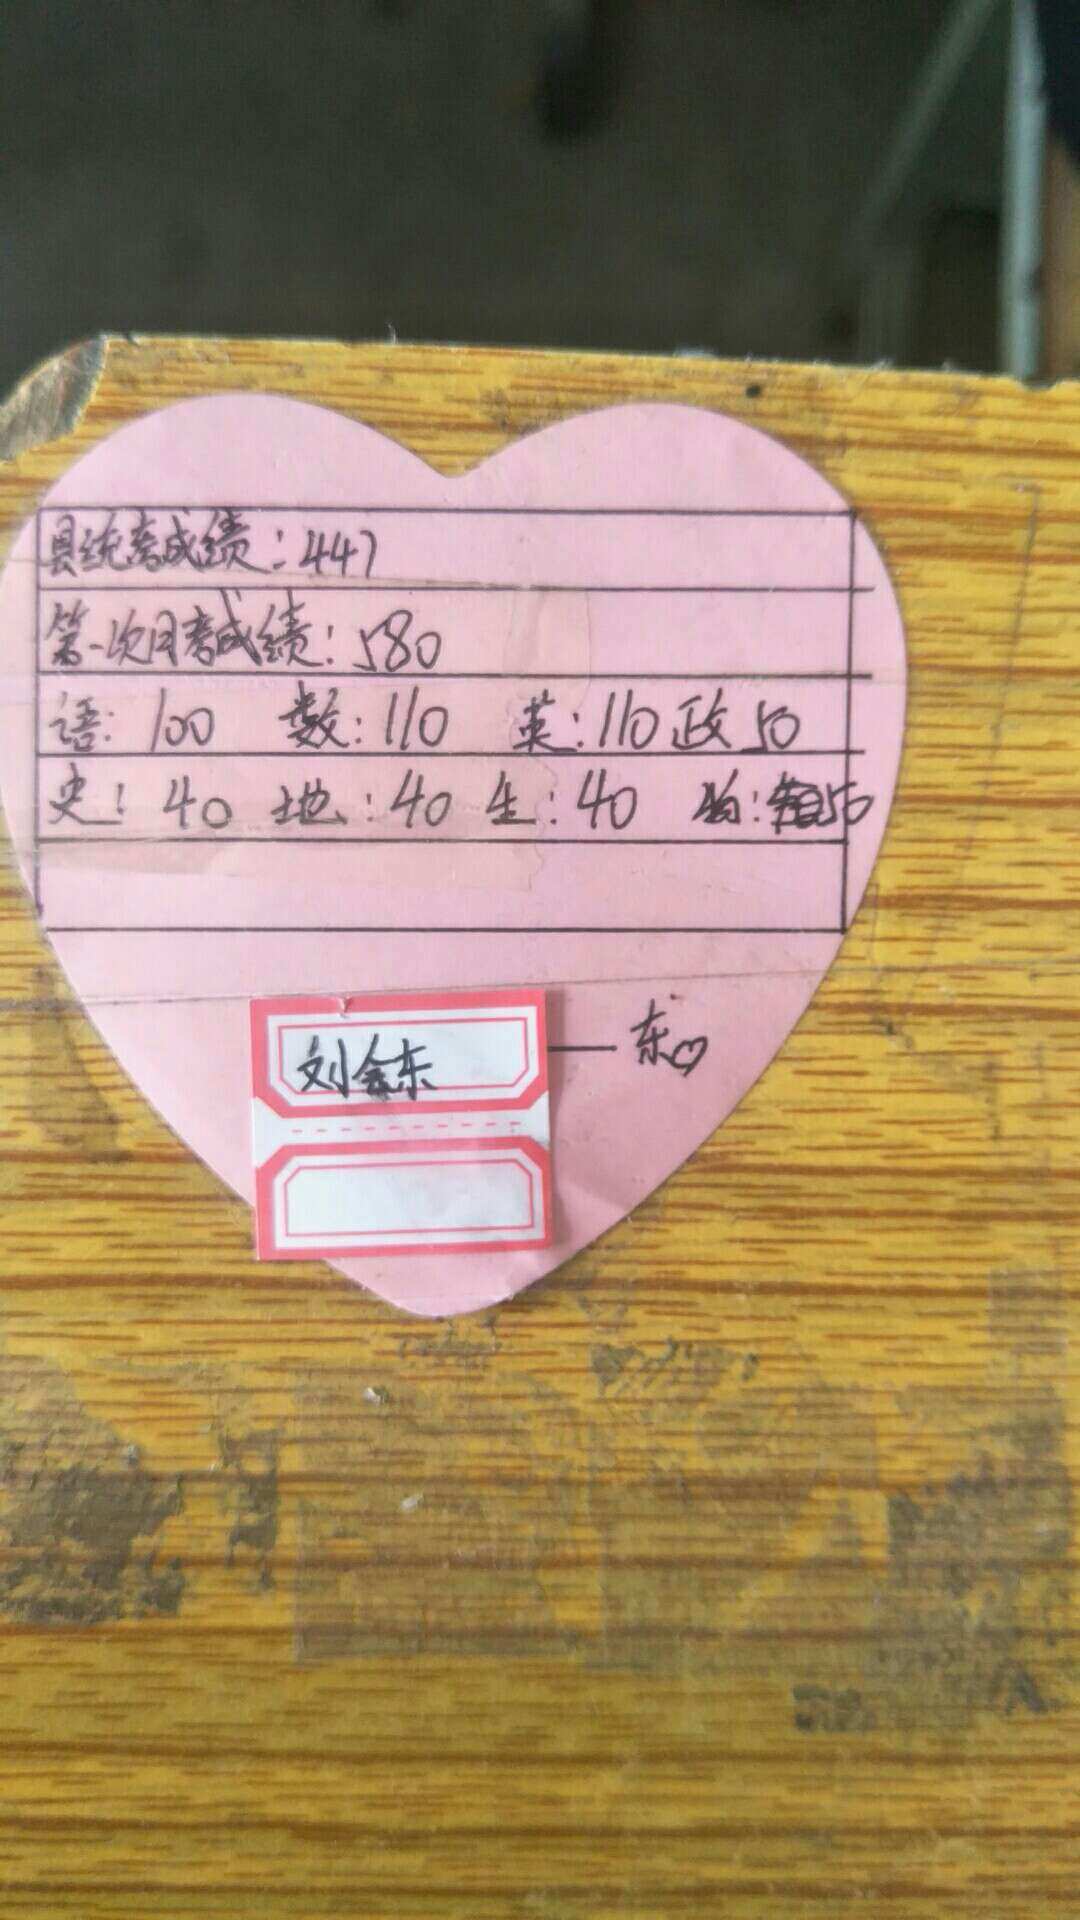 县统考成绩：447
第一次月考成绩：580
语：100 数：110 英：110 政50
史：40 地：40 生：40 50
刘金东 — 东♡